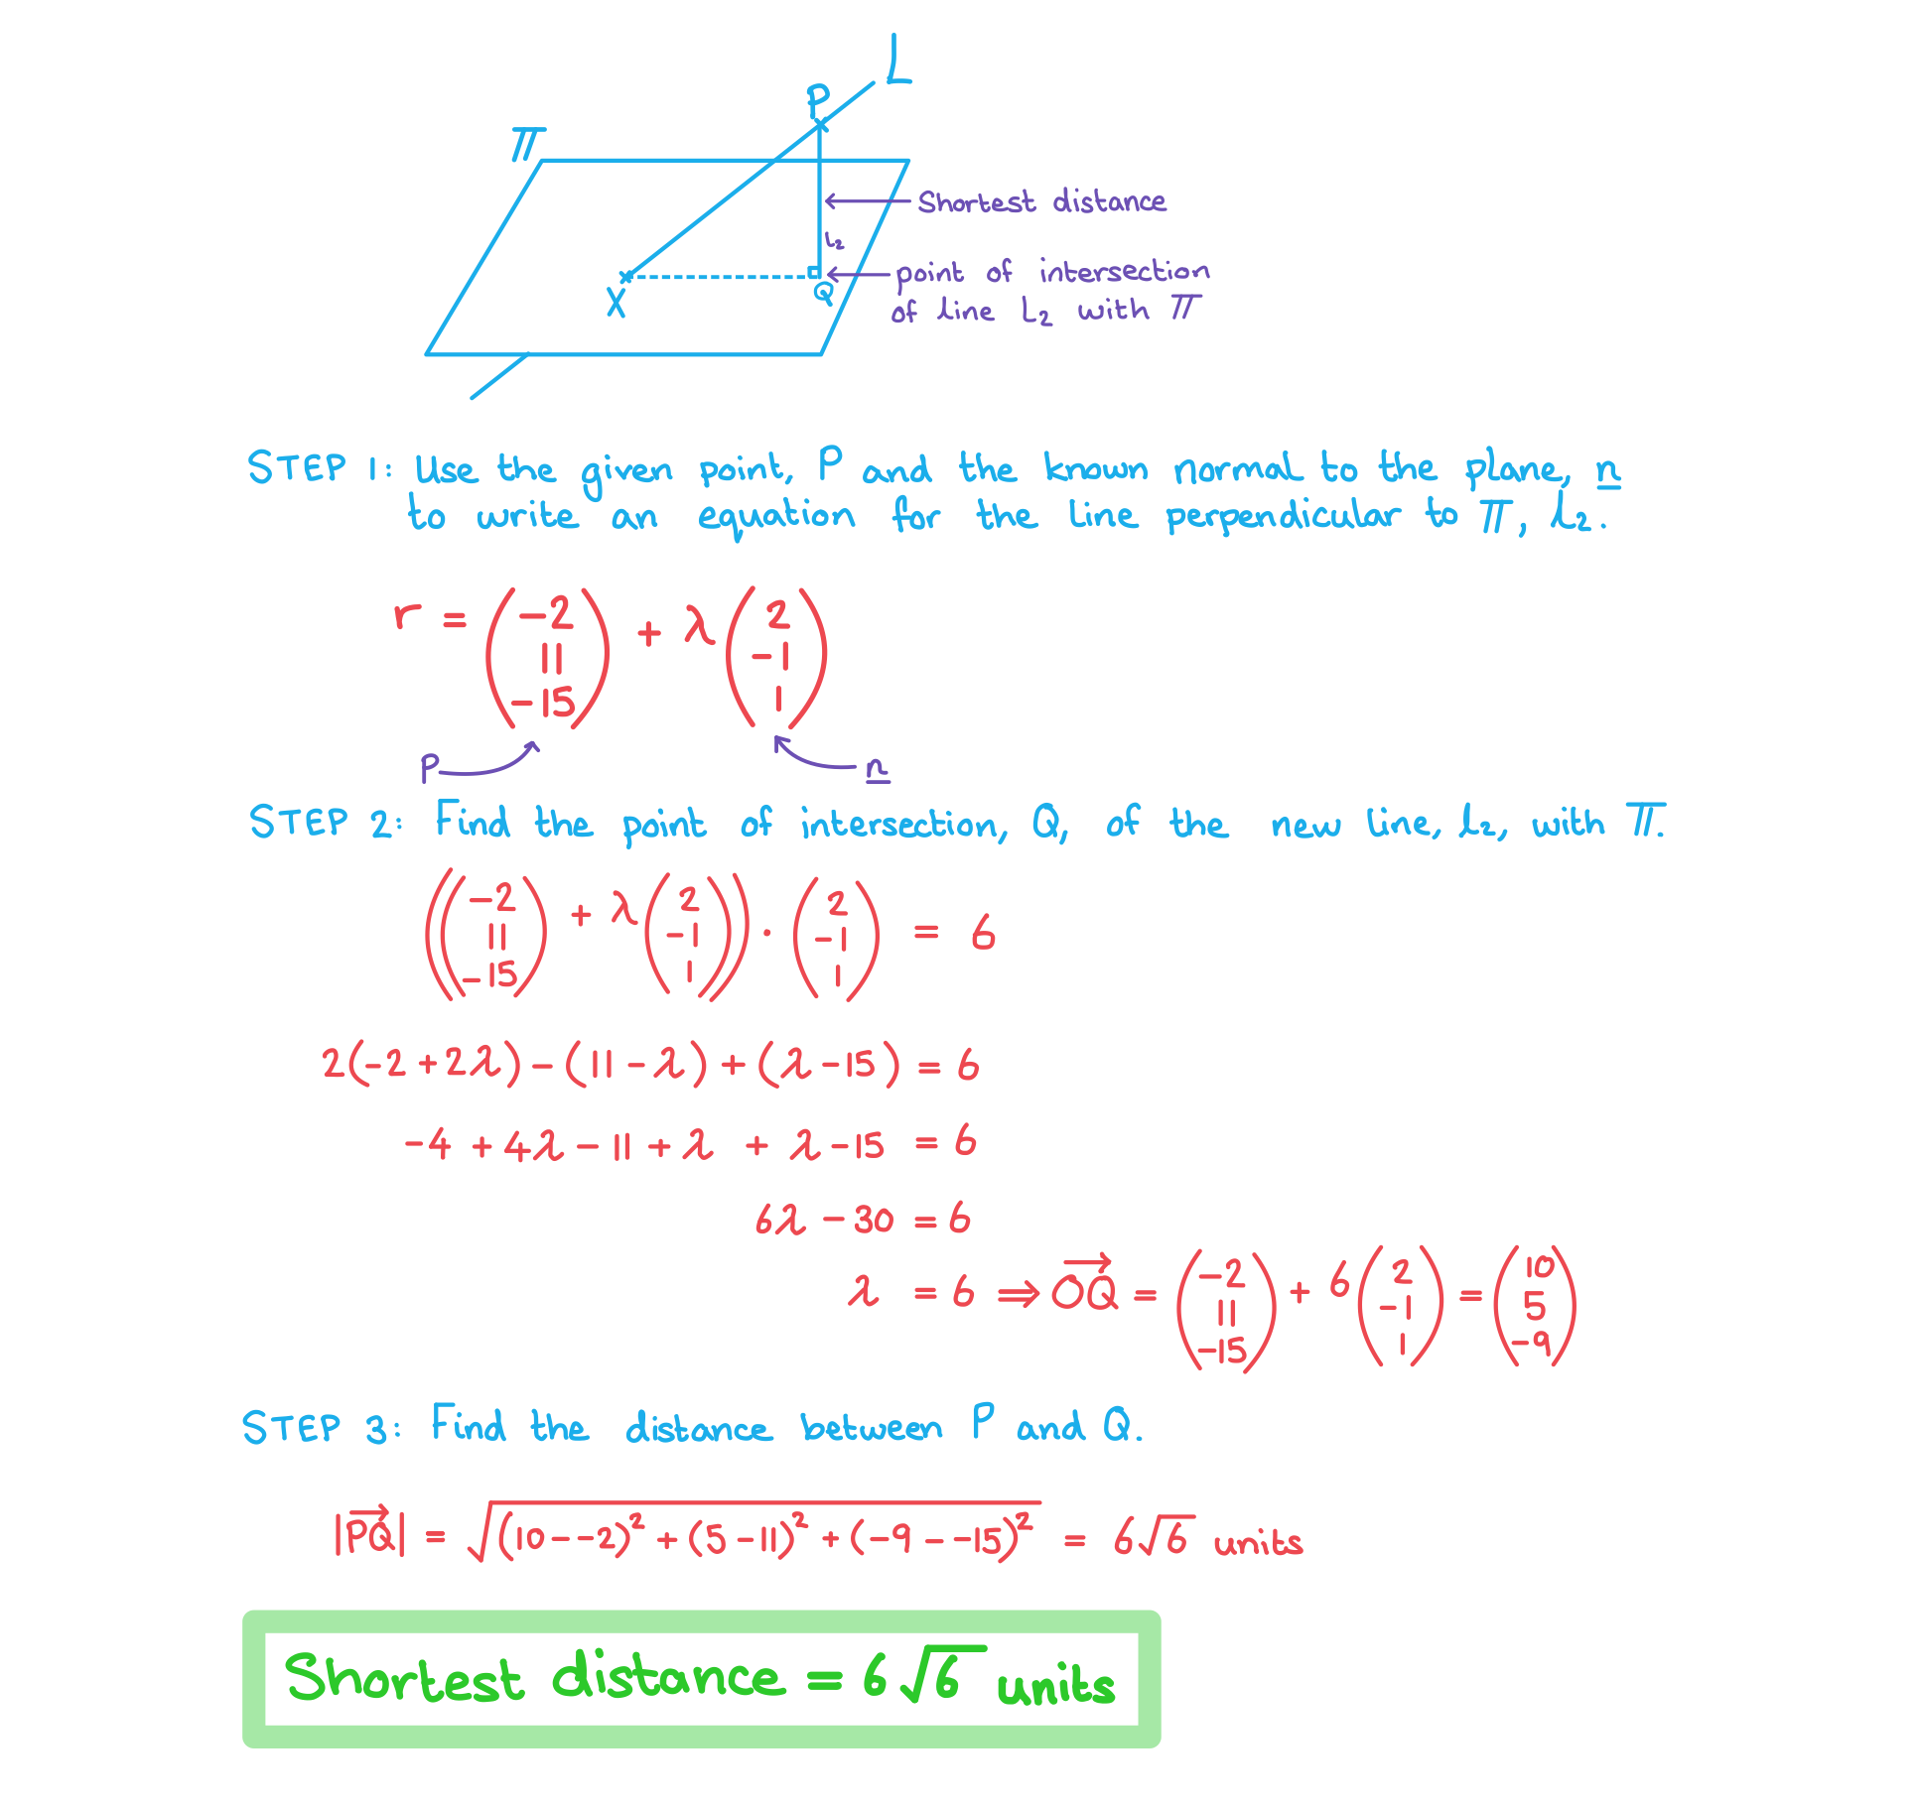 L
P
π
Shortest distance
L₂
point of intersection
X
Q
of line L₂ with π
STEP 1: Use the given point, P and the known normal to the plane, n
to write an equation for the line perpendicular to π, L₂.
r = (-2 11 -15) + λ(2 -1 1)
P n
STEP 2: Find the point of intersection, Q, of the new line, L₂, with π.
((-2 11 -15) + λ(2 -1 1)) · (2 -1 1) = 6
2(-2 + 2λ) - (11 - λ) + (λ - 15) = 6
-4 + 4λ - 11 + λ + λ - 15 = 6
6λ - 30 = 6
λ = 6 ⇒ \overrightarrow{OQ} = (-2 11 -15) + 6(2 -1 1) = (10 5 -9)
STEP 3: Find the distance between P and Q.
|\overrightarrow{PQ}| = √((10 - -2)² + (5 - 11)² + (-9 - -15)²) = 6√6 units
Shortest distance = 6√6 units